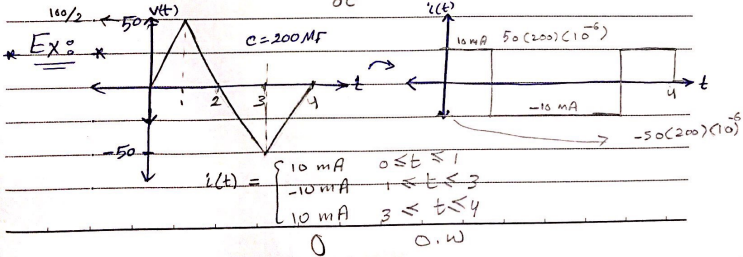 DC
100/2 ← 50 v(t) i(t)
* Ex: * C = 200 MF 10 mA 50(200)(10^-6)
1 2 3 4 t t 4
-10 mA
-50 -50(200)(10)^-6
i(t) = { 10 mA 0 ≤ t ≤ 1
-10 mA 1 ≤ t ≤ 3
10 mA 3 ≤ t ≤ 4
0 0.W